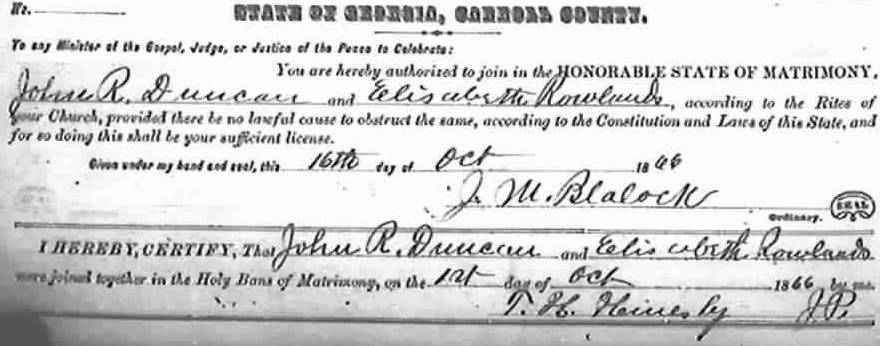 No.
STATE OF GEORGIA, CARROLL COUNTY.
To any Minister of the Gospel, Judge, or Justice of the Peace to Celebrate:
You are hereby authorized to join in the HONORABLE STATE OF MATRIMONY,
John R. Duncan and Elisabeth Rowlands, according to the Rites of
your Church, provided there be no lawful cause to obstruct the same, according to the Constitution and Laws of this State, and
for so doing this shall be your sufficient license.
Given under my hand and seal, this 16th day of Oct 1866
J. M. Blalock
Ordinary. SEAL
I HEREBY, CERTIFY, That John R. Duncan and Elisabeth Rowlands
were joined together in the Holy Bans of Matrimony, on the day of Oct 1866 by me.
T. H. J.P.